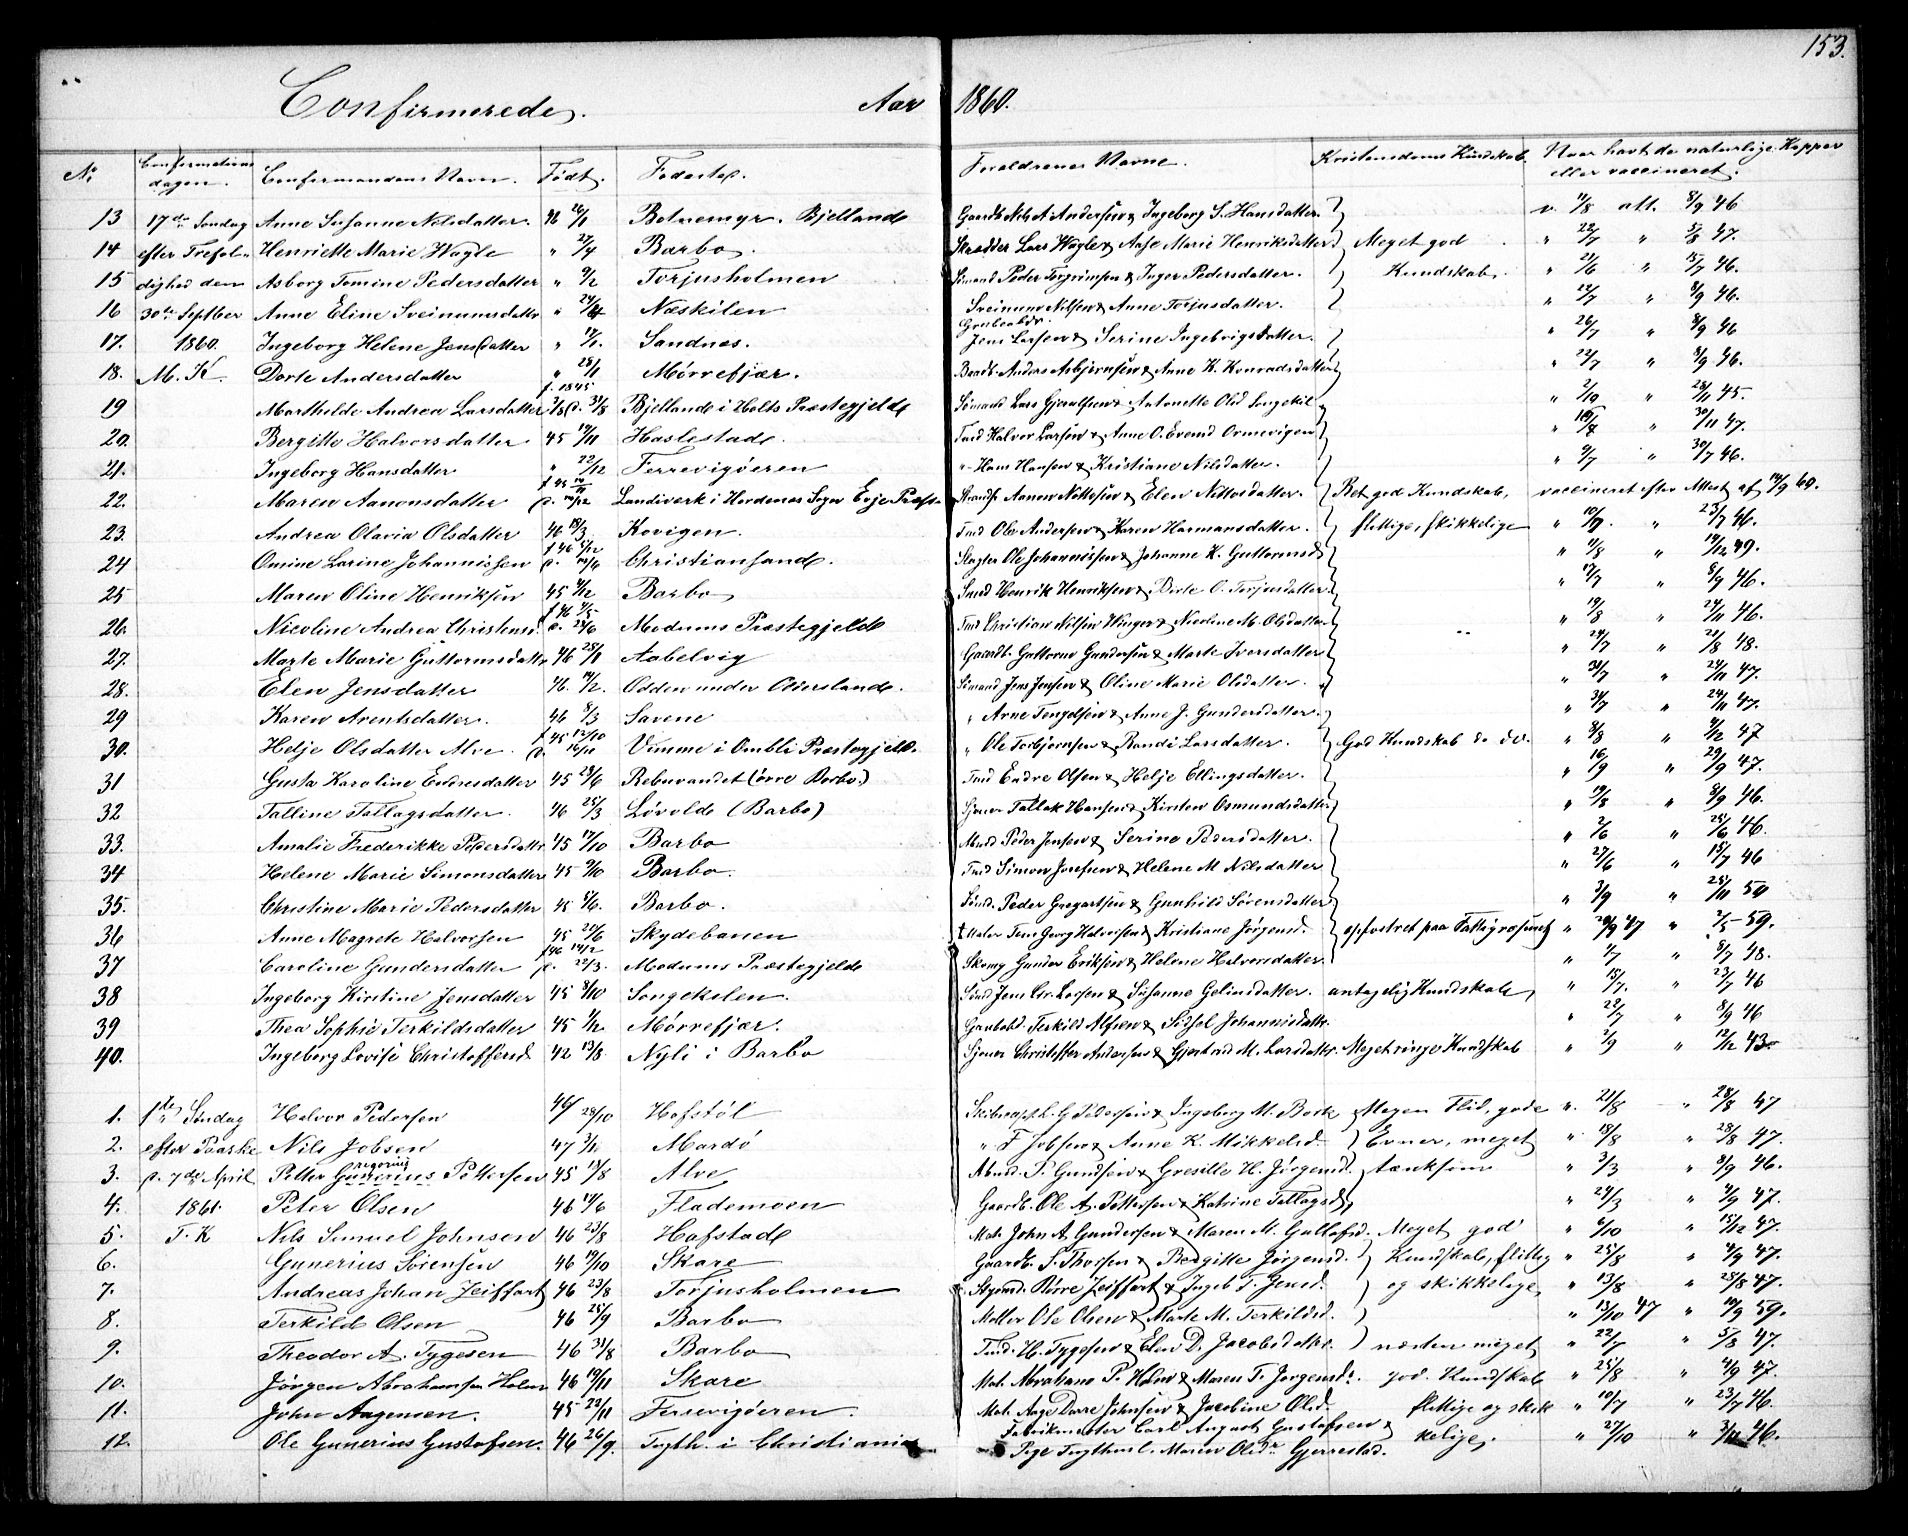 153.
Confirmerede. Aar 1860.
No Confirmations dagen. Confirmandens Navn. Født. Fødested. Forældrenes Navne. Kristendoms Kundskab. Naar havt de naturlige Kopper eller vaccineret.
13 17de Søndag Anne Susanne Nilsdatter. 46 Botnemyr. Bjelland Gaardb. Nils A. Andersen & Ingeborg S. Hansdatter. v. 11/8 att. 8/9 46
14 efter Trefol- Henriette Marie Wagle " 27/4 Barbo. Skrædder Lars Wagle & Aase Marie Henriksdatter. Meget god " 22/7 " 5/8 47.
15 dighed den Asborg Tomine Pedersdatter " 9/2 Torjusholmen Sømand Peder Torgrimsen & Inger Pedersdatter. Kundskab. " 21/6 " 15/7 46.
16 30te Septber Anne Eline Sveinunnsdatter " Næskilen Sveinunn Nilsen & Anne Torjusdatter. " 12/7 " 8/9 46.
17. 1860. Ingeborg Helene Jensdatter " Sandnæs. Jens Larsen & Serine Ingebrigtsdatter. " 26/7 " 8/9 46
18. M. K. Dorte Andersdatter " 28/11 Mørrefjær. Anders Asbjørnsen & Anne K. Konradsdatter " 22/7 " 8/9 46.
19 Marthilde Andrea Larsdatter f. 1845 Bjelland i Holts Præstegjeld Sømand Lars & Antonette Olsd. Songekil " 2/10 " 28/11 45.
20. Bergitte Halvorsdatter 45 Haslestad. Tmd Halvor Larsen & Anne O. Evensd Ormevigen " " 30/11 47.
21. Ingeborg Hansdatter " 22/12 Ferrevigøeren " Hans Hansen & Kristiane Nilsdatter. " 9/7 " 30/7 46.
22. Maren Aanonsdatter Landverk i Hordenes Sogn Evje Præst. Aanon Nottosen & Elen Nottosdatter. Ret god Kundskab, vaccineret efter Attest af 14/9 60.
23. Andrea Olavia Olsdatter 46 18/3 Kovigen. Tmd Ole Andersen & Karen Harmansdatter. flittige, skikkelige " 10/7. " 23/7 46.
24 Omine Larine Johannissen Christiansand. Slagter Ole Johannissen & Johanne K. Guttormsd " 11/8 " 14/12 49.
25 Maren Oline Henriksen 45 Barbo Smed Henrik Henriksen & Dorte O. Torjusdatter. " 17/7 " 8/9 46.
26. Nicoline Andrea Christens. Modums Præstegjeld Tmd Christian Nilsen Winger & Nicoline M. Olsdatter. " 19/8 " 24/11 46.
27. Marte Marie Guttormsdatter 46 25/1 Aabelvig Gaardb. Guttorm Gundersen & Marte Iversdatter " 24/7 " 21/8 48.
28. Elen Jensdatter 46. 14/2. Odden under Odersland. Sømand Jens Jensen & Oline Marie Olsdatter. " 31/7 " 24/11 47.
29 Karen Arentsdatter. 46 8/3 Savene " Arne Tengelsen & Anne J. Gundersdatter. " 31/7 " 24/11 47.
30. Helje Olsdatter Alve. Vimme i Ombli Præstegjeld. " Ole Torbjørnsen & Randi Larsdatter. God Kundskab do do. " 8/8 " 9/2 47
31 Gusta Karoline Endresdatter 45 28/6 Rebuvandet (øvre Barbo.) Tmd Endre Olsen & Helje Ellingsdatter. " 16/9 " 29/9 47.
32 Talline Tallagsdatter. 46 25/3 Løvold (Barbo) Tallak Hansen & Kirsten Osmundsdatter " 19/8 " 8/9 46.
33. Amalie Frederikke Pedersdatter 45 17/10 Barbo Peder Jensen & Serine Pedersdatter. " 2/6 " 25/6 46.
34 Helene Marie Simonsdatter 45 9/10 Barbo. Tmd Simon Josefsen & Helene M Nilsdatter " 27/6 " 15/7 46
35. Christine Marie Pedersdatter 45 Barbo. Peder Gregartsen & Gunhild Sørensdatter " 3/9 " 25/11 50
36 Anne Magrete Halvorsen 45 27/6 Skydebanen Maler Tens Georg Halvorsen & Kristiane Jørgensd. opfostret paa Fattigvæsenet " 20/9 47 " 2/5-59.
37 Caroline Gundersdatter Modums Præstegjeld Gunder Eriksen & Helene Halvorsdatter. " 1/7 " 8/7 48.
38 Ingeborg Kirstine Jensdatter 45 8/10 Songekilen. Jens Chr. Larsen & Susanne Gelinsdatter. antagelig Kundskab, " 15/7. " 23/7 46
39 Thea Sophie Terkildsdatter 45 Mørrefjær. Terkild Alfsen & Sidsel Johannisdatter. " 22/7 " 8/9 46
40. Ingeborg Lovise Christoffersd. 42 13/8. Nyli i Barbo Christoffer Andersen & Gjertrud M. Larsdatter. Meget ringe Kundskab " 2/9 " 12/12 43.
1. 1te Søndag Halvor Pedersen 46/ 28/10 Hofstøl G. Pedersen & Ingeborg M. Bork Megen Flid, gode v. 21/8 " 28/8 47
2. efter Paaske Nils Jobsen 47 3/2 Mardø " F. Jobsen & Anne K. Mikkelsd. Evner, meget " 18/8 " 28/8 47.
3. d. 7de April Petter Gunerius Pettersen 45 17/8 Alve P. Gundsen & Gresille H. Jørgensd. tænksom " 3/3 " 8/9 46.
4. 1861. Peter Olsen 46 14/6 Flademoen Gaardb. Ole A. Pettersen & Katrine Tallagsd, " 24/3 " 4/9 47.
5. T. K Nils Semuel Johnsen 46 23/8 Hofstad Mat. John A. Gundersen & Maren M. Gullefsd. Meget god " 6/10 " 15/12 47.
6. Gunerius Sørensen 46 19/10 Skare Gaardb. S. Thorsen & Bergitte Jørgensd. Kundskab, flittig " 25/8 " 4/9 47.
7. Andreas Johan Zeiffart 46 23/8 Torjusholmen Børre Zeiffart & Ingeb. T. Jensd. og skikkelige, " 13/8 " 28/8 47.
8. Terkild Olsen 46 25/9 Barbo Møller Ole Olsen & Marte M. Terkildsd. " 13/10 47 " 10/9 59.
9. Theodor A. Tygesen 46 31/8 Barbo Tmd. H. Tygesen & Elen D. Jacobsdatter. næsten meget " 22/7 " 5/8 47.
10. Jørgen Abrahamsen Holm 46 19/11 Skare Mat. Abraham P. Holm & Maren T. Jørgensd. god Kundskab " 25/8 " 4/9 47.
11. John Aagensen. 45 22/11 Ferrevigøeren. Mat. Aage Johnsen & Jacobine Olsd. flittige og skik " 10/7 " 23/7 46.
12. Ole Gunerius Gustafsen. 46 26/9. Tugth. i Christiania Fabrikmester Carl August Gustafsen & kelige. " 27/10 " 3/11 46.
Pige Maren Olsdr Gjerrestad.